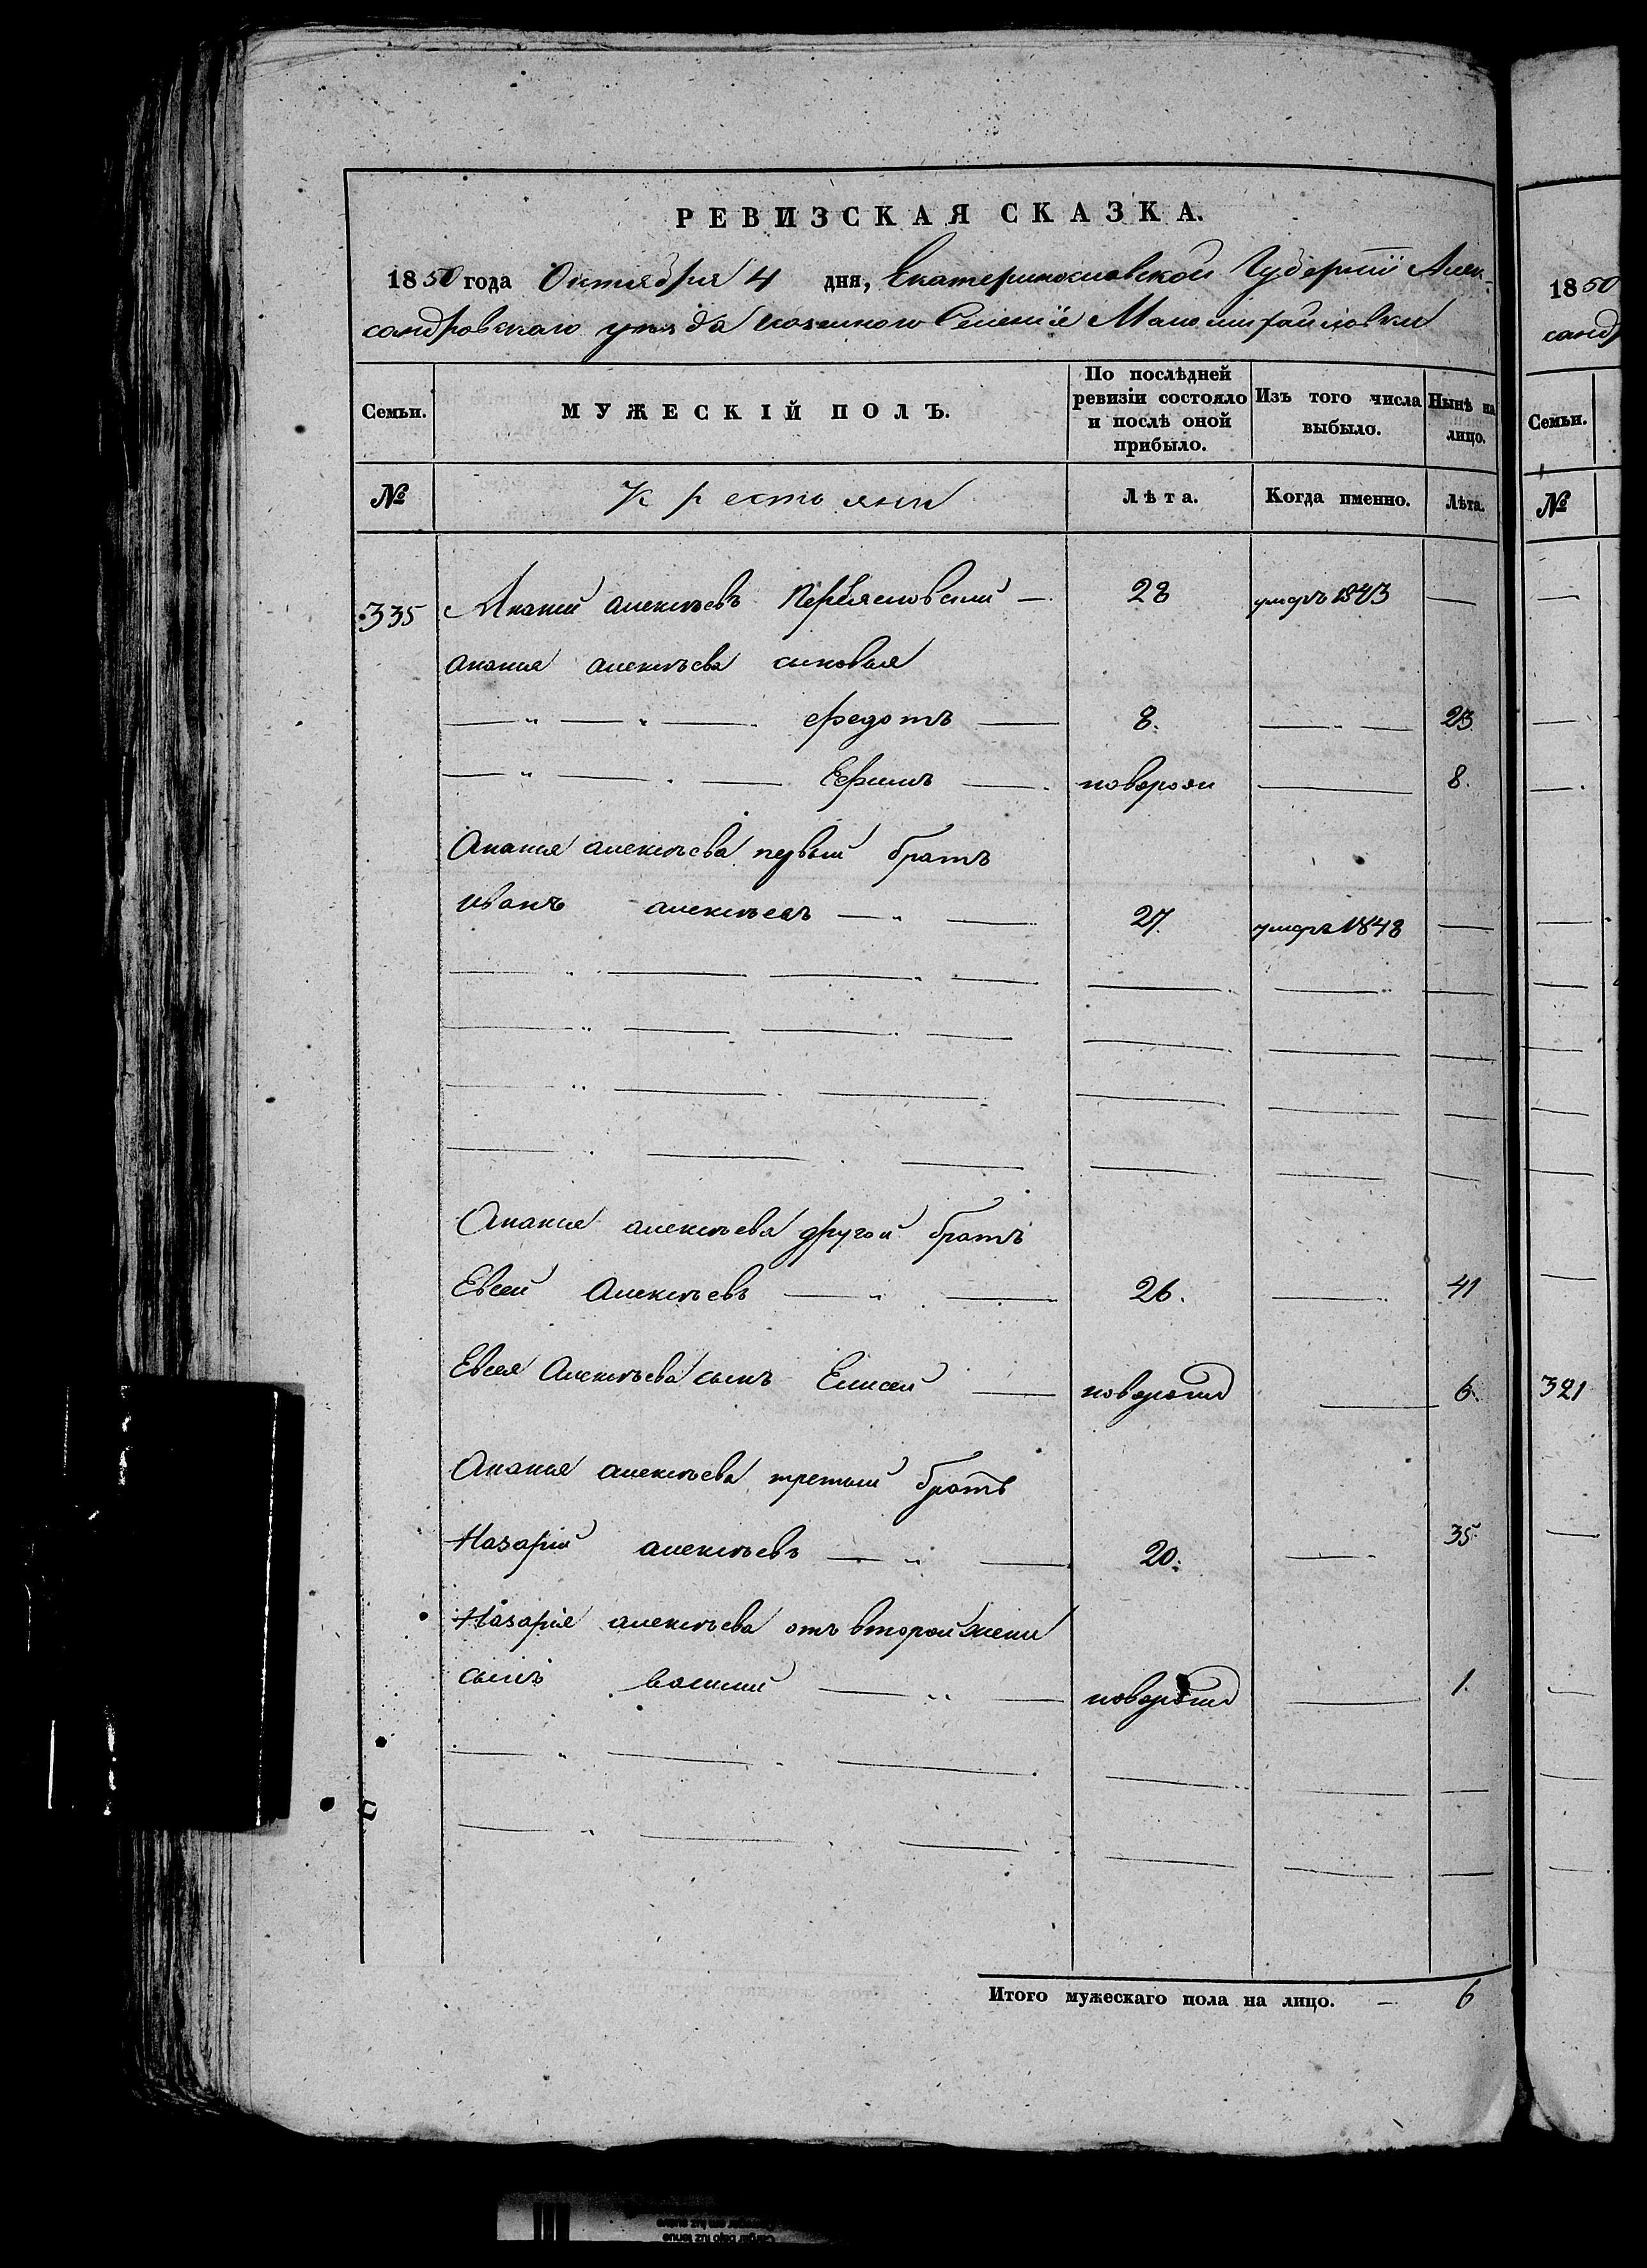 РЕВИЗСКАЯ СКАЗКА.
1850 года Октября 4 дня, Екатеринославской Губерніи Алек-
сандровскаго уѣзда казенного Селенія Маломихайловки
Семьи. МУЖЕСКІЙ ПОЛЪ. По послѣдней ревизіи состояло и послѣ оной прибыло. Изъ того числа выбыло. Нынѣ на лицо.
№ Крестьяни Лѣта. Когда именно. Лѣта.
335 Ананий алексѣевъ — 28 умеръ 1843 —
анания алексѣева сыновья
— " — " — федотъ — 8. — 23
— " — . — Ефимъ — новорож — 8.
Анания алексѣева первый братъ
иванъ алексѣевъ — " — 27. умеръ 1848 —
Анания алексѣева другой братъ
Евсей Алексѣевъ — " — 26. — 41
Евсея Алексѣева сынъ Елисей — новорожд — 6.
Анания алексѣева третий братъ
Назарій алексѣевъ — " — 20. — 35
Назарія алексѣева отъ второй жены
сынъ василий — " — новорожд — 1.
Итого мужескаго пола на лицо. — 6
1850
санд
Семьи.
№
321